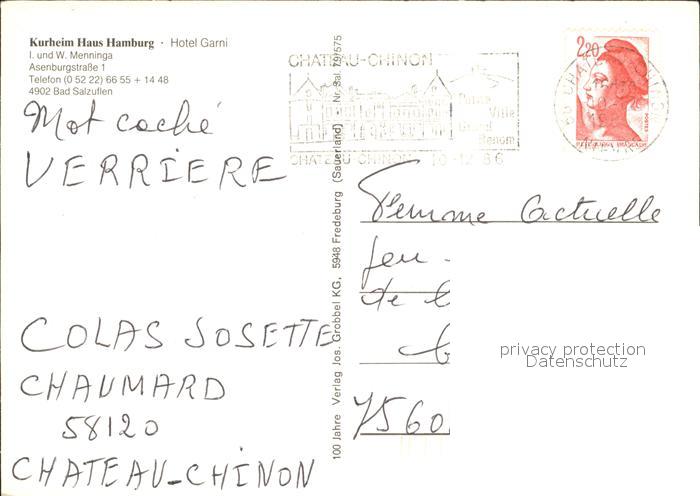 Kurheim Haus Hamburg · Hotel Garni
I. und W. Menninga
Asenburgstraße 1
Telefon (0 52 22) 66 55 + 14 48
4902 Bad Salzuflen
Mot caché
VERRIERE
COLAS JOSETTE
CHAUMARD
58120
CHATEAU-CHINON
100 Jahre Verlag Jos. Grobbel KG, 5948 Fredeburg (Sauerland) Nr. Sal. 79/575
CHATEAU-CHINON
Petite Ville
Grand Renom
CHATEAU-CHINON 10-12 86
2,20
POSTES
Femme Actuelle
Jeu
de
7560
privacy protection
Datenschutz